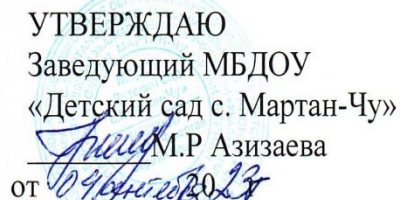 УТВЕРЖДАЮ
Заведующий МБДОУ
«Детский сад с. Мартан-Чу»
М.Р Азизаева
от 04 сентября 2023г